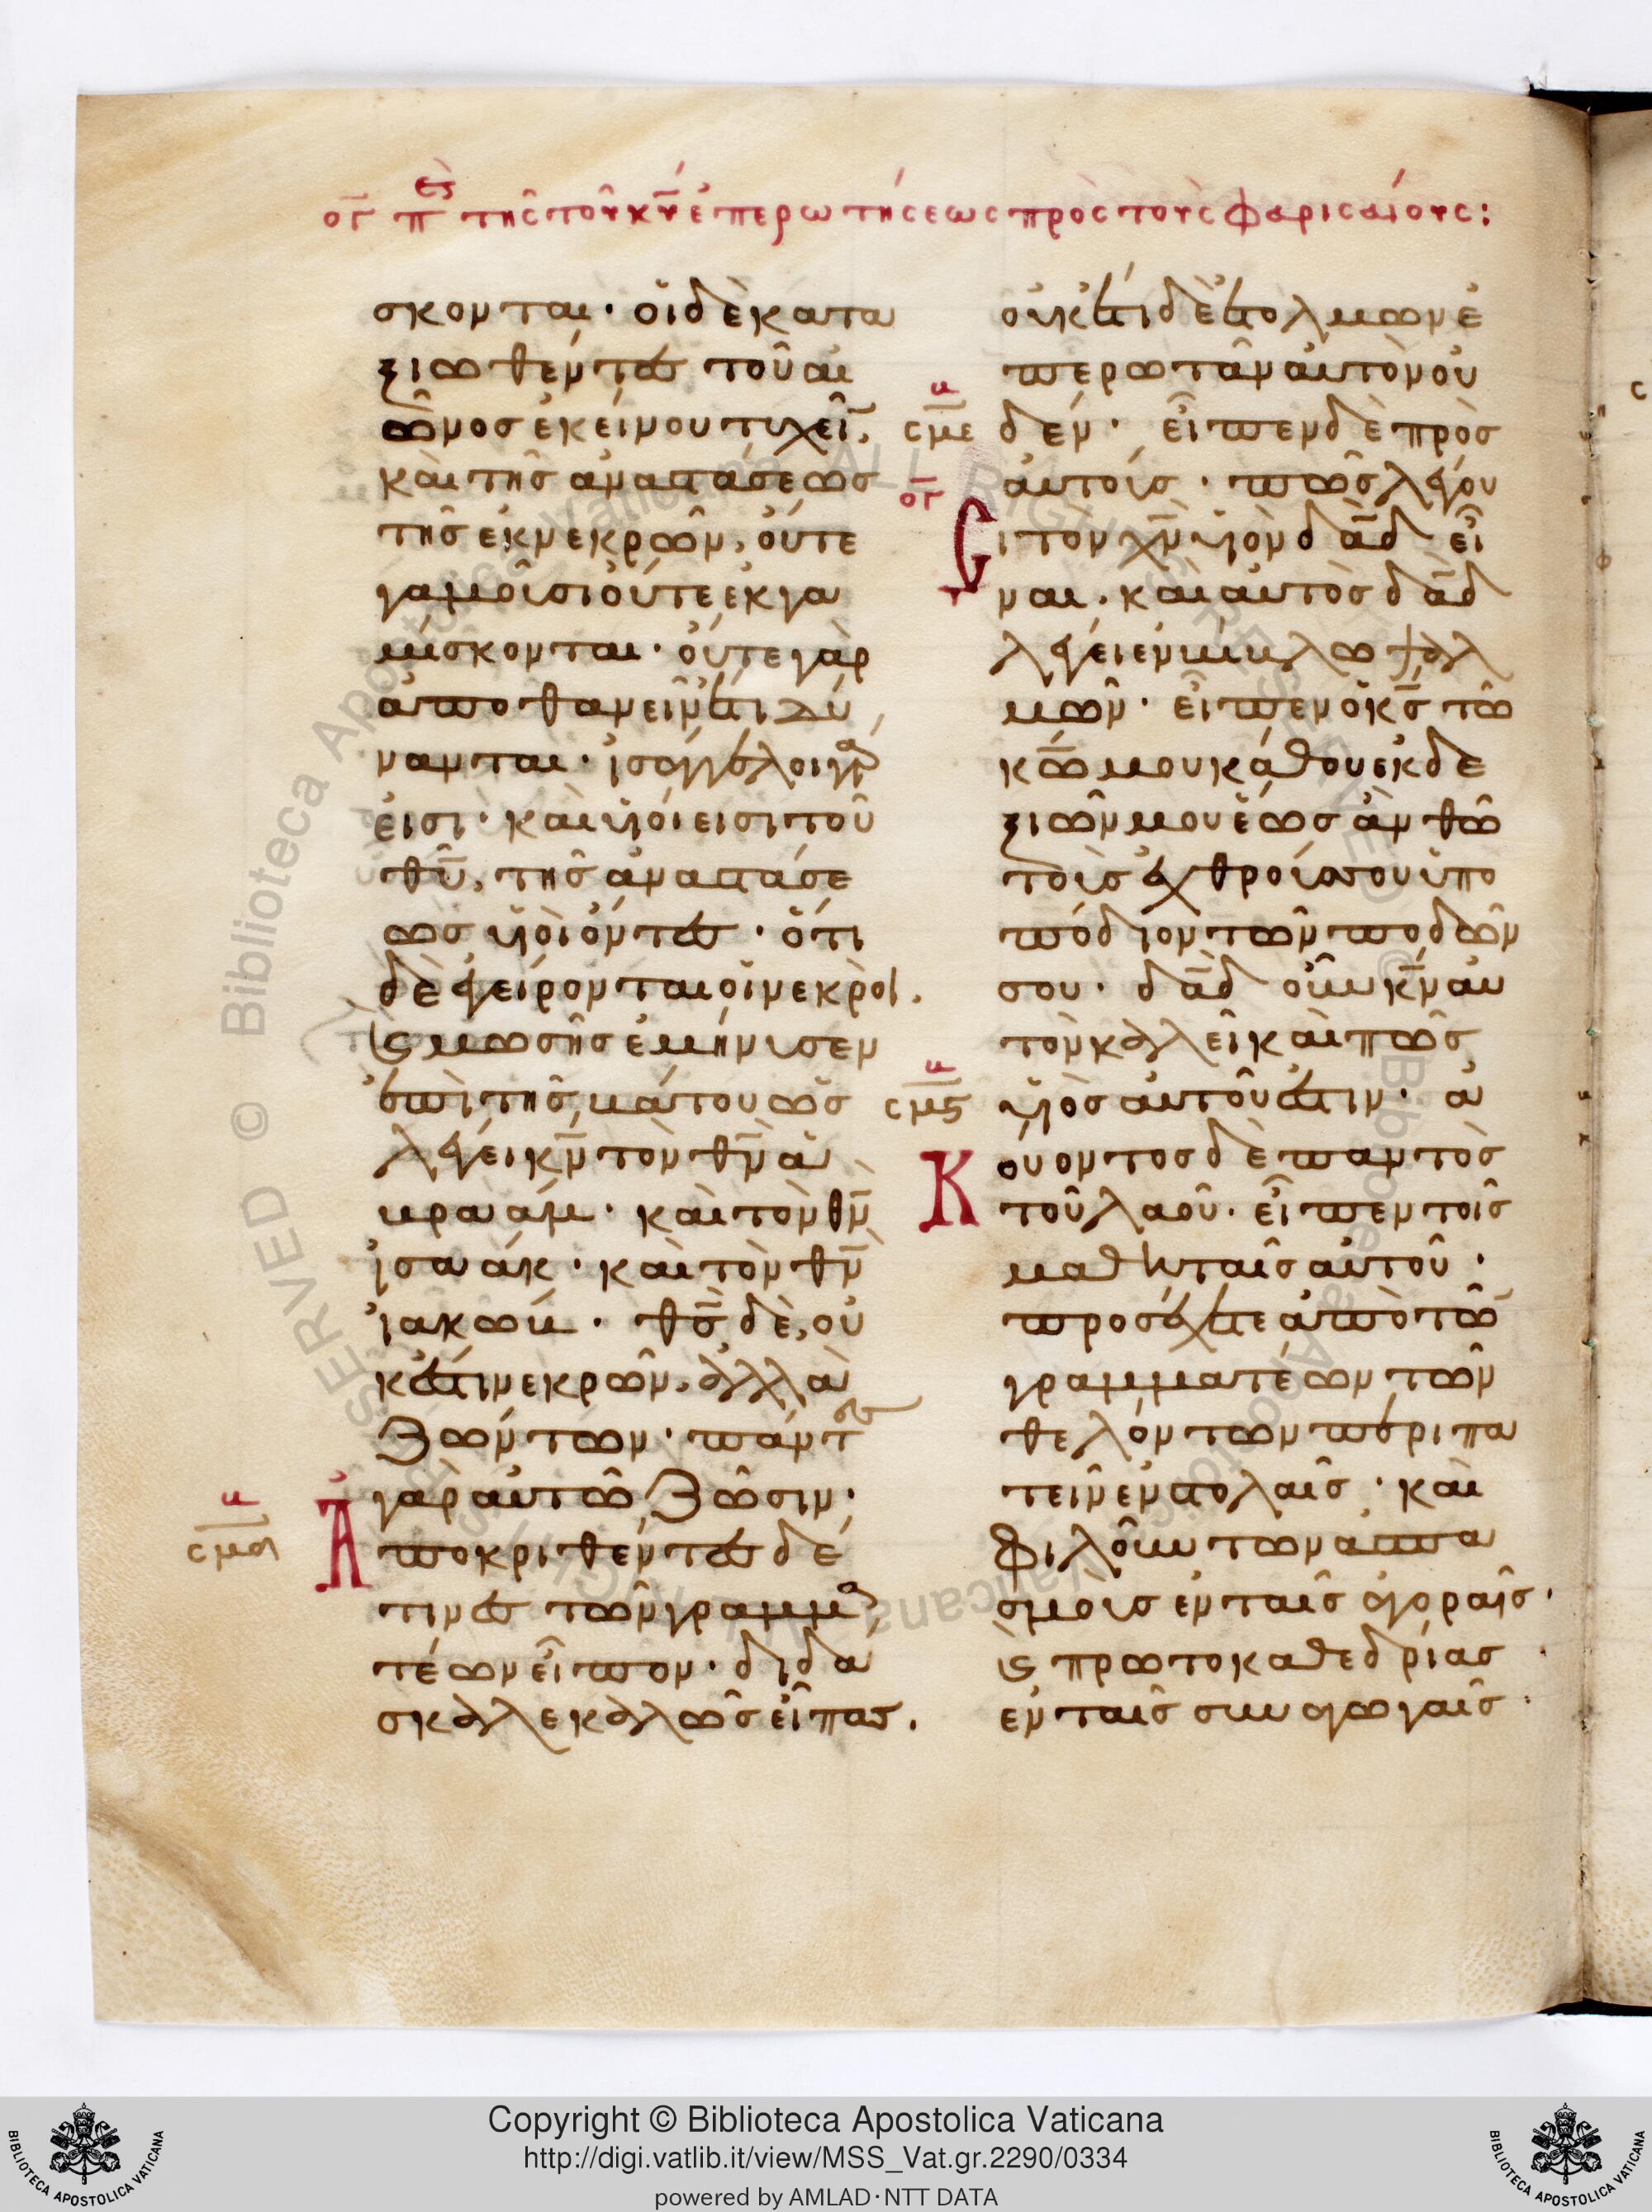 ογ πὲς τῆς τοῦ κῡ ἐπερωτήσεως πρὸς τοὺς φαρισαίους:
σκονται· οἱ δὲ κατα
ξιωθέντες τοῦ αἰ
ῶνος ἐκείνου τυχεῖν,
καὶ τῆς ἀναστάσεως
τῆς ἐκ νεκρῶν, οὔτε
γαμοῦσι οὔτε ἐκγα
μίσκονται· οὔτε γὰρ
ἀποθανεῖν ἔτι δύ
νανται· ἰσάγγελοι γὰρ
εἰσι· καὶ υἱοί εἰσι τοῦ
θῦ, τῆς ἀναστάσε
ως υἱοὶ ὄντες· ὅτι
δὲ ἐγείρονται οἱ νεκροὶ.
ϛ μωσῆς ἐμήνυσεν
ἐπὶ τῆς βάτου ὡς
λέγει κν̄ τὸν θν̄ ἀ
βραάμ· καὶ τὸν θν̄
ἰσαάκ· καὶ τὸν θν̄
ἰακώβ· θς̄ δὲ, οὐ
κ ἔστιν νεκρῶν, ἀλλὰ
ζώντων· πάντες
γὰρ αὐτῶ ζῶσιν·
σμδ
Ἀποκριθέντες δέ
τινες τῶν γραμμα
τέων εἶπον· διδά
σκαλε καλῶς εἶπας.
οὐκ ἔτι δὲ ἐτόλμων ἐ
περωτᾶν αὐτὸν οὐ
σμε δέν· εἶπεν δὲ πρὸς
ογ αὐτούς· πῶς λέγου
Σι τὸν χν̄ υἱὸν δᾱδ εἶ
ναι· καὶ αὐτὸς δᾱδ
λέγει ἐν βίβλω ψαλ
μῶν· εἶπεν ὁ κς̄ τῶ
κω̄ μου κάθου ἐκ δε
ξιῶν μου ἕως ἂν θῶ
τοὺς ἐχθρούς σου ὑπο
πόδιον τῶν ποδῶν
σου· δᾱδ οὖν κν̄ αὐ
τὸν καλεῖ καὶ πῶς
σμς υἱὸς αὐτοῦ ἐστιν· ἀ
Κούοντος δὲ παντὸς
τοῦ λαοῦ· εἶπεν τοῖς
μαθηταῖς αὐτοῦ·
προσέχετε ἀπὸ τῶ̄
γραμματέων τῶν
θελόντων περιπα
τεῖν ἐν στολαῖς· καὶ
φιλούντων ἀσπα
σμοὺς ἐν ταῖς ἀγοραῖς·
ϛ πρωτοκαθεδρίας
ἐν ταῖς συναγωγαῖς·
Copyright © Biblioteca Apostolica Vaticana
http://digi.vatlib.it/view/MSS_Vat.gr.2290/0334
powered by AMLAD·NTT DATA
BIBLIOTECA APOSTOLICA VATICANA
BIBLIOTECA APOSTOLICA VATICANA